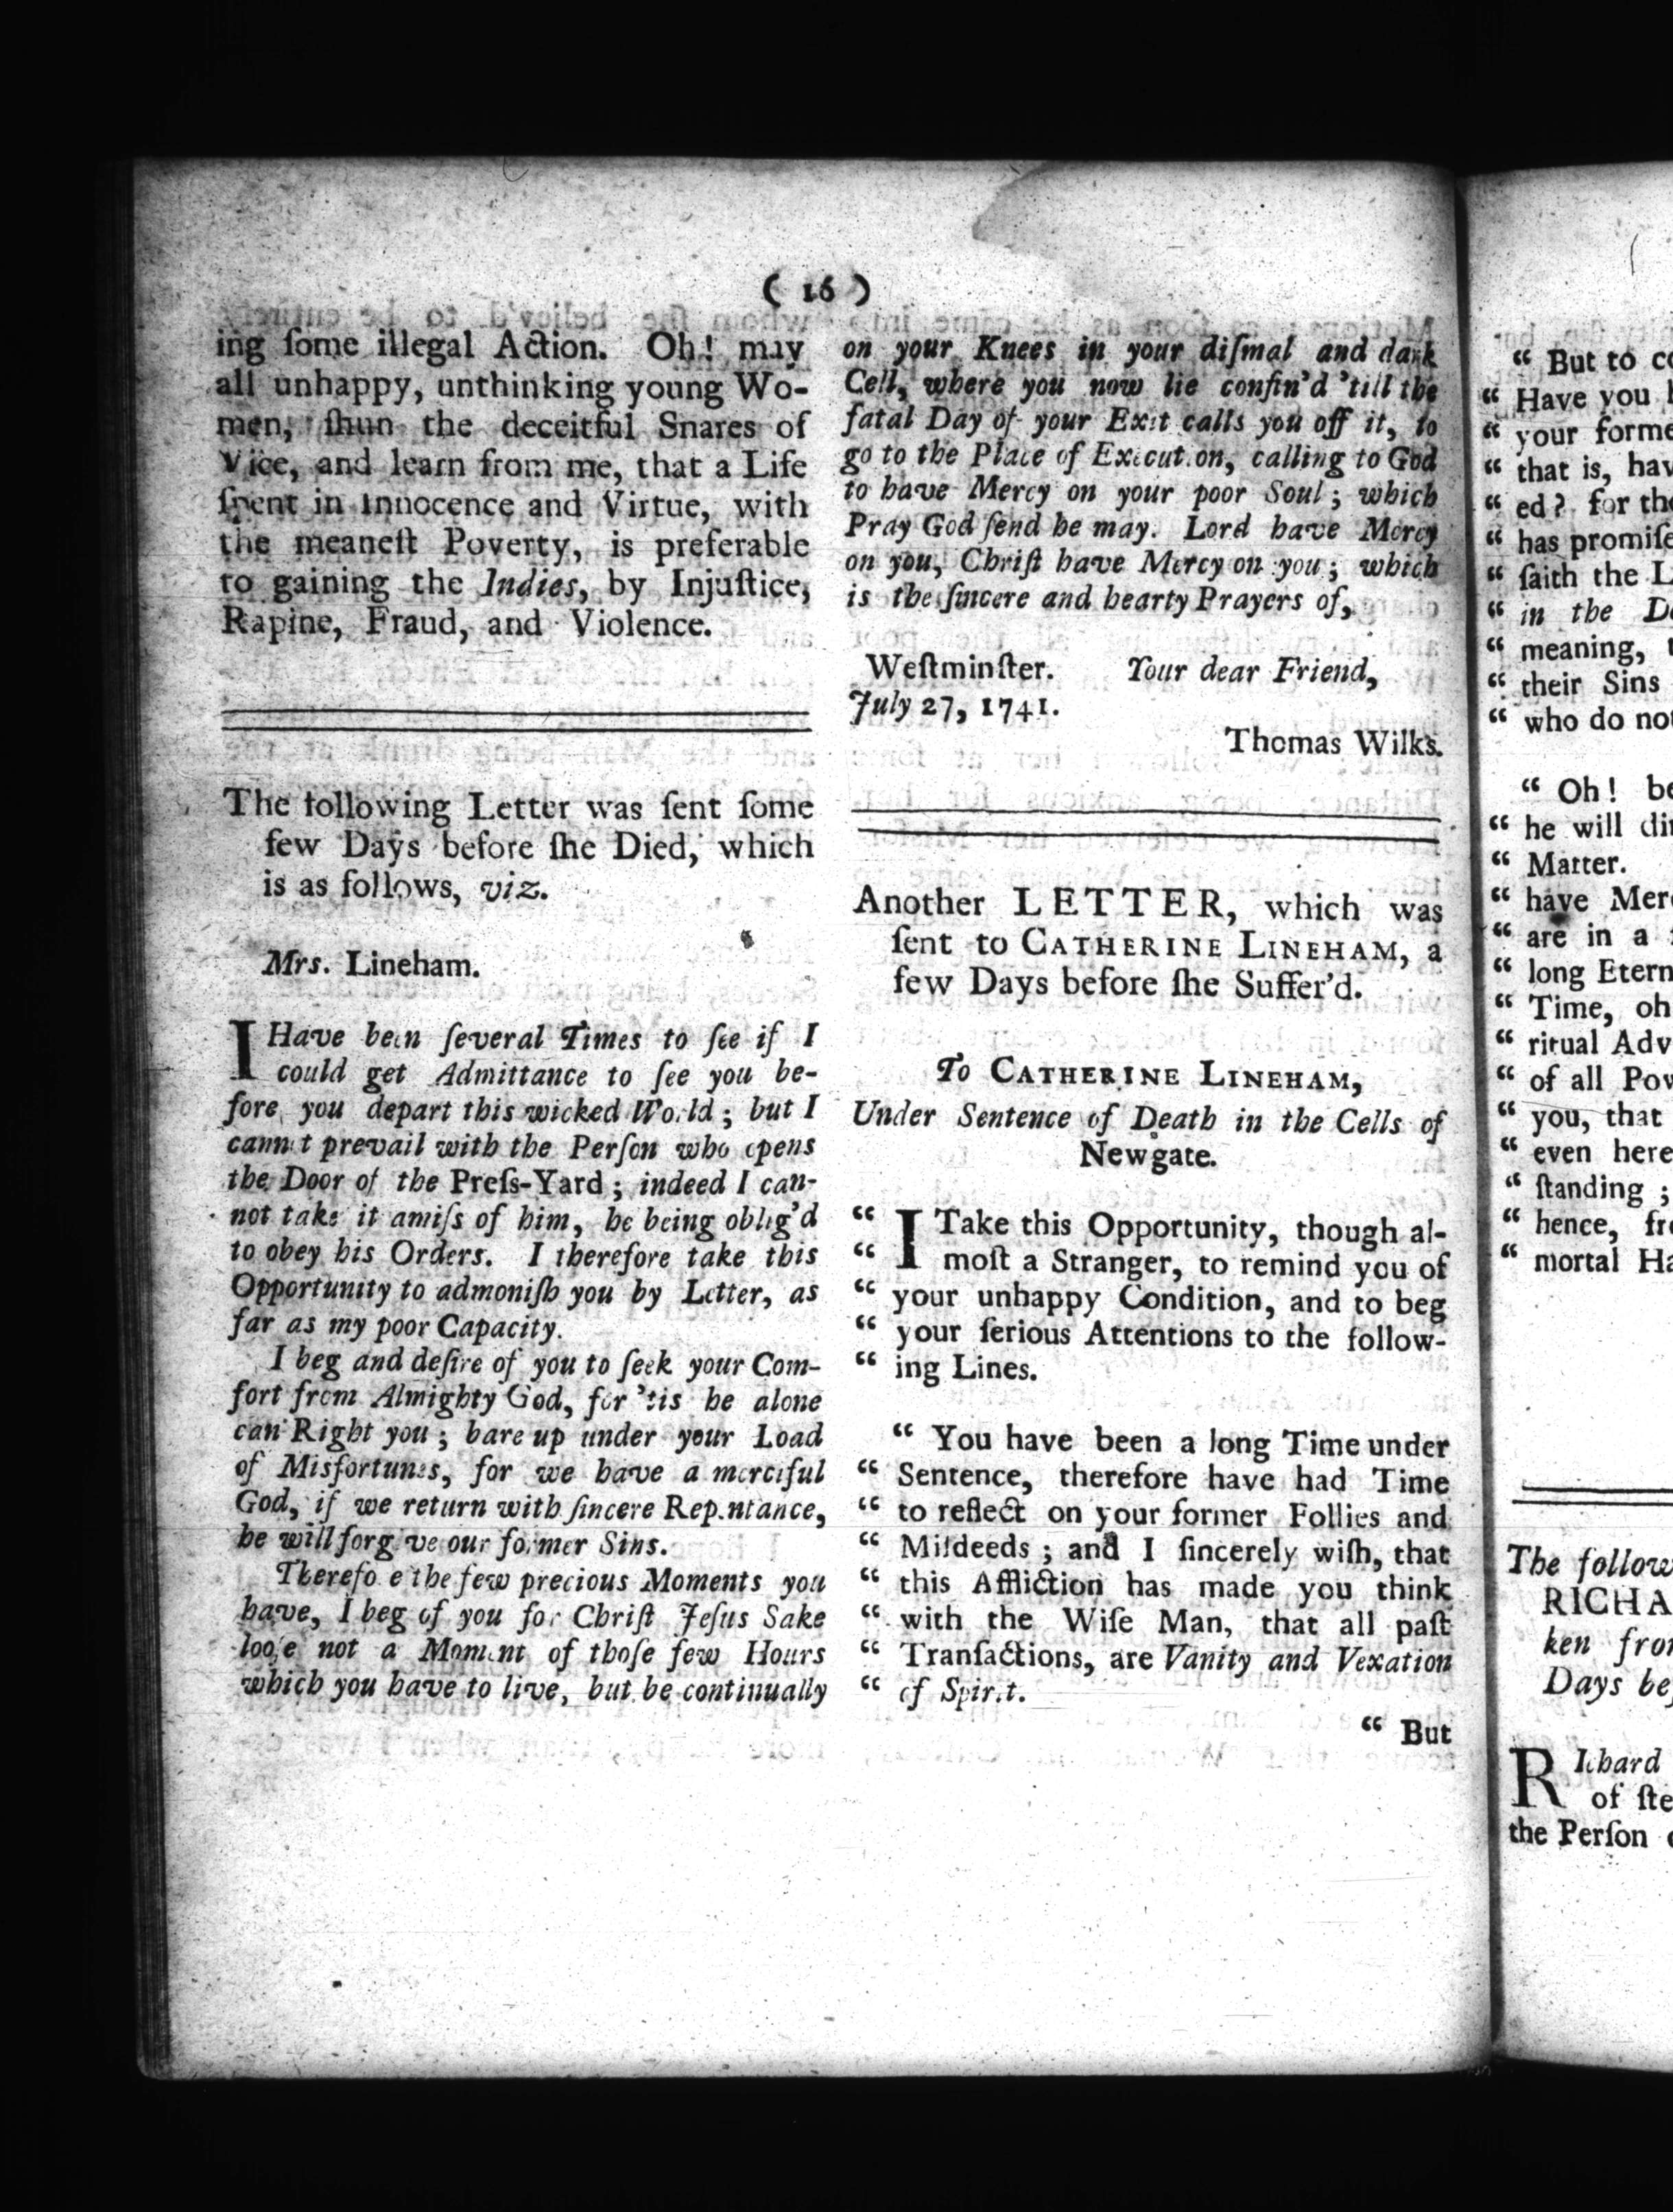 ( 16 )
ing ſome illegal Action. Oh! may
all unhappy, unthinking young Wo-
men, ſhun the deceitful Snares of
Vice, and learn from me, that a Life
ſpent in Innocence and Virtue, with
the meaneſt Poverty, is preferable
to gaining the Indies, by Injuſtice,
Rapine, Fraud, and Violence.
The following Letter was ſent ſome
few Days before ſhe Died, which
is as follows, viz.
Mrs. Lineham.
I Have been ſeveral Times to ſee if I
could get Admittance to ſee you be-
fore you depart this wicked World; but I
cannot prevail with the Perſon who opens
the Door of the Preſs-Yard; indeed I can-
not take it amiſs of him, he being oblig'd
to obey his Orders. I therefore take this
Opportunity to admoniſh you by Letter, as
far as my poor Capacity.
I beg and deſire of you to ſeek your Com-
fort from Almighty God, for 'tis he alone
can Right you; bare up under your Load
of Misfortunes, for we have a merciful
God, if we return with ſincere Repentance,
he will forgive our former Sins.
Therefore the few precious Moments you
have, I beg of you for Chriſt Jeſus Sake
looſe not a Moment of thoſe few Hours
which you have to live, but be continually
on your Knees in your diſmal and dark
Cell, where you now lie confin'd 'till the
fatal Day of your Exit calls you off it, to
go to the Place of Execution, calling to God
to have Mercy on your poor Soul; which
Pray God ſend he may. Lord have Mercy
on you, Chriſt have Mercy on you; which
is the ſincere and hearty Prayers of,
Weſtminſter. Your dear Friend,
July 27, 1741.
Thomas Wilks.
Another LETTER, which was
ſent to CATHERINE LINEHAM, a
few Days before ſhe Suffer'd.
To CATHERINE LINEHAM,
Under Sentence of Death in the Cells of
Newgate.
“ I Take this Opportunity, though al-
“ moſt a Stranger, to remind you of
“ your unhappy Condition, and to beg
“ your ſerious Attentions to the follow-
“ ing Lines.
“ You have been a long Time under
“ Sentence, therefore have had Time
“ to reflect on your former Follies and
“ Miſdeeds; and I ſincerely wiſh, that
“ this Affliction has made you think
“ with the Wiſe Man, that all paſt
“ Tranſactions, are Vanity and Vexation
“ of Spirit.
“ But
“ But to
“ Have you
“ your
“ that is,
“ ed? for
“ has
“ ſaith the
“ in the
“ meaning,
“ their Sins
“ who do
“ Oh!
“ he will
“ Matter.
“ have
“ are in a
“ long
“ Time, oh
“ ritual
“ of all
“ you, that
“ even here
“ ſtanding;
“ hence,
“ mortal
The
RICHA
ken
Days
Richard
of
the Perſon